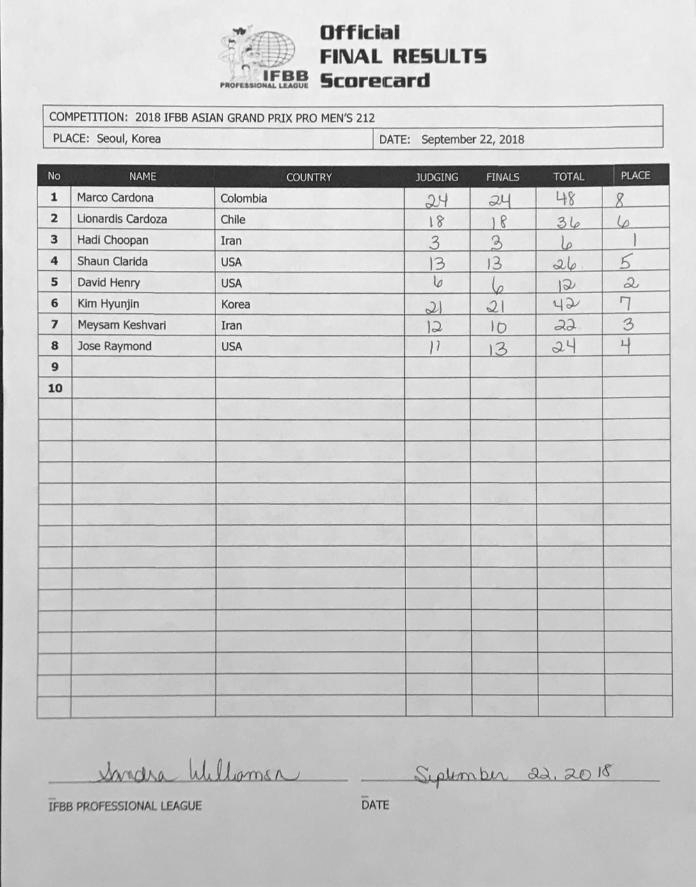 Official
FINAL RESULTS
Scorecard
IFBB
PROFESSIONAL LEAGUE
COMPETITION: 2018 IFBB ASIAN GRAND PRIX PRO MEN'S 212
PLACE: Seoul, Korea DATE: September 22, 2018
No NAME COUNTRY JUDGING FINALS TOTAL PLACE
1 Marco Cardona Colombia 24 24 48 8
2 Lionardis Cardoza Chile 18 18 36 6
3 Hadi Choopan Iran 3 3 6 1
4 Shaun Clarida USA 13 13 26 5
5 David Henry USA 6 6 12 2
6 Kim Hyunjin Korea 21 21 42 7
7 Meysam Keshvari Iran 12 10 22 3
8 Jose Raymond USA 11 13 24 4
9
10
Sandra Williamson September 22, 2018
IFBB PROFESSIONAL LEAGUE DATE